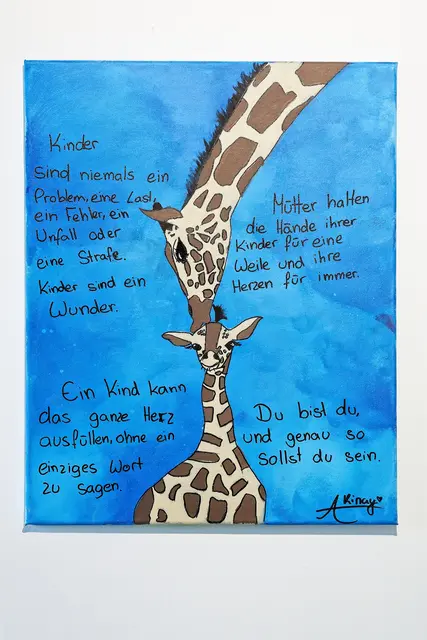 Kinder
sind niemals ein
Problem, eine Last,
ein Fehler, ein
Unfall oder
eine Strafe.
Kinder sind ein
Wunder.
Mütter halten
die Hände ihrer
Kinder für eine
Weile und ihre
Herzen für immer.
Ein Kind kann
das ganze Herz
ausfüllen, ohne ein
einziges Wort
zu sagen.
Du bist du,
und genau so
sollst du sein.
A Kinay